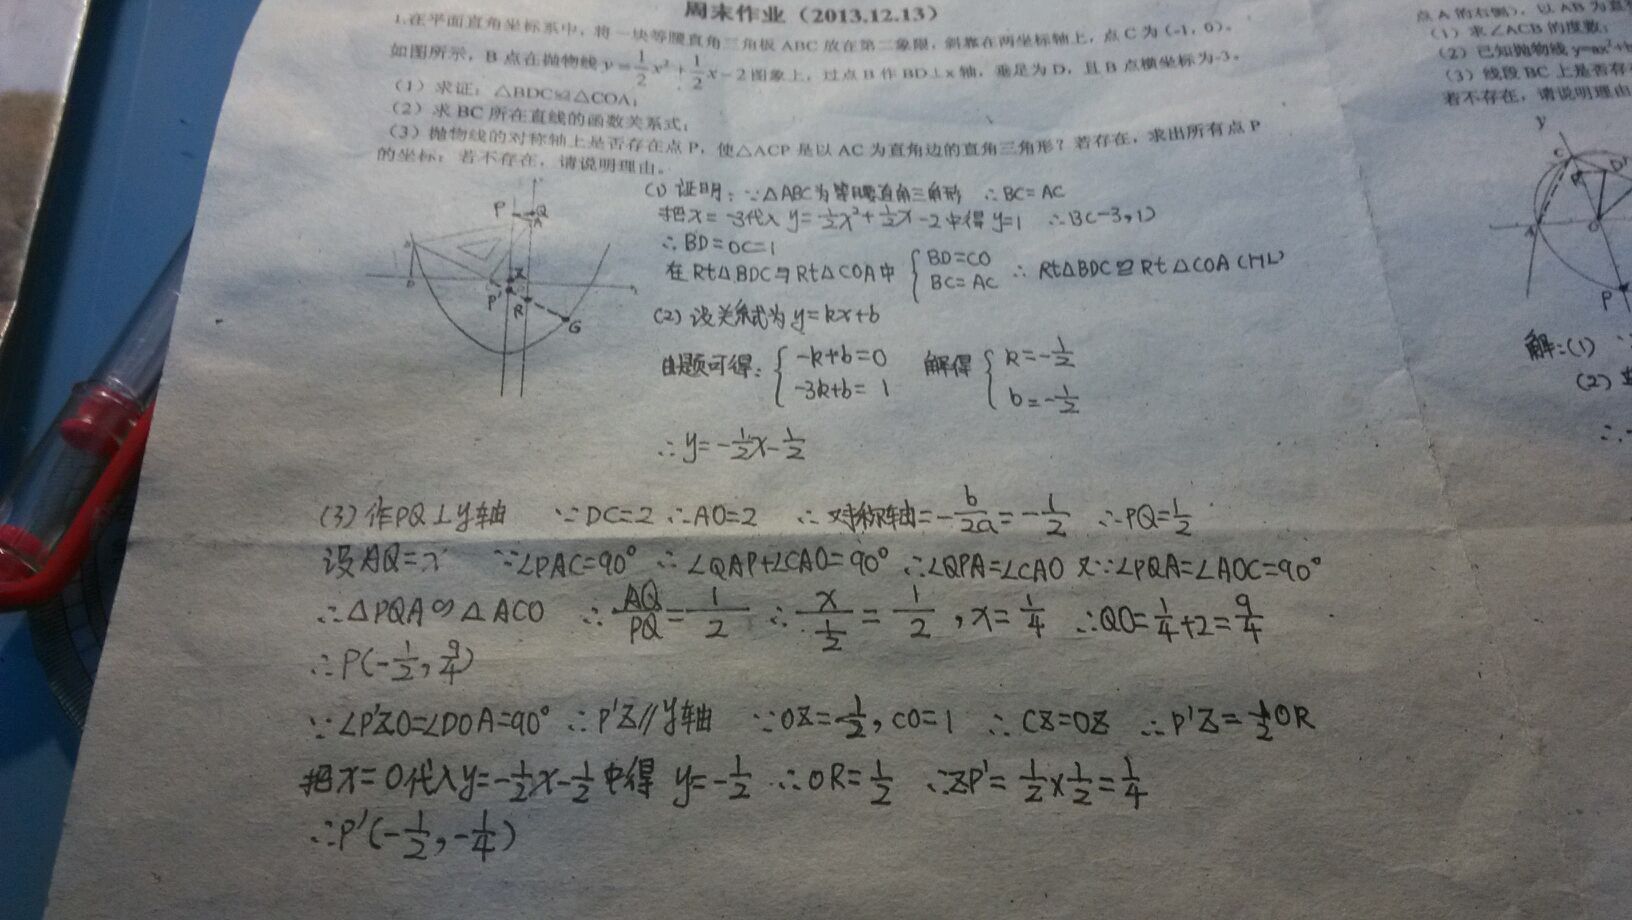 周末作业（2013.12.13）
1.在平面直角坐标系中，将一块等腰直角三角板 ABC 放在第二象限，斜靠在两坐标轴上，点 C 为 (-1, 0)。
如图所示，B 点在抛物线 y=1/2x²+1/2x-2 图象上，过点 B 作 BD⊥x 轴，垂足为 D，且 B 点横坐标为-3。
（1）求证：△BDC≌△COA；
（2）求 BC 所在直线的函数关系式；
（3）抛物线的对称轴上是否存在点 P，使△ACP 是以 AC 为直角边的直角三角形？若存在，求出所有点 P
的坐标；若不存在，请说明理由。
P Q
A
B
D
Z
P' R
G
(1) 证明：∵△ABC为等腰直角三角形 ∴BC=AC
把x=-3代入 y=1/2x²+1/2x-2中得 y=1 ∴B(-3,1)
∴BD=OC=1
在Rt△BDC与Rt△COA中 { BD=CO
BC=AC ∴Rt△BDC≌Rt△COA(HL)
(2) 设关系式为y=kx+b
由题可得: { -k+b=0 解得 { k=-1/2
-3k+b=1 b=-1/2
∴y=-1/2x-1/2
(3) 作PQ⊥y轴 ∵DC=2 ∴AO=2 ∴对称轴=-b/2a=-1/2 ∴PQ=1/2
设AQ=x ∵∠PAC=90° ∴∠QAP+∠CAO=90° ∴∠QPA=∠CAO 又∵∠PQA=∠AOC=90°
∴△PQA∽△ACO ∴AQ/PQ=1/2 ∴x/(1/2)=1/2, x=1/4 ∴QO=1/4+2=9/4
∴P(-1/2, 9/4)
∵∠P'ZO=∠DOA=90° ∴P'Z//y轴 ∵OZ=1/2, CO=1 ∴CZ=OZ ∴P'Z=1/2OR
把x=0代入y=-1/2x-1/2中得 y=-1/2 ∴OR=1/2 ∴ZP'=1/2×1/2=1/4
∴P'(-1/2, -1/4)
点 A 的右侧），以 AB 为直
（1）求∠ACB 的度数；
（2）已知抛物线 y=ax²+b
（3）线段 BC 上是否存
若不存在，请说明理由
y
C
D
A
O
P
解:(1)
(2)